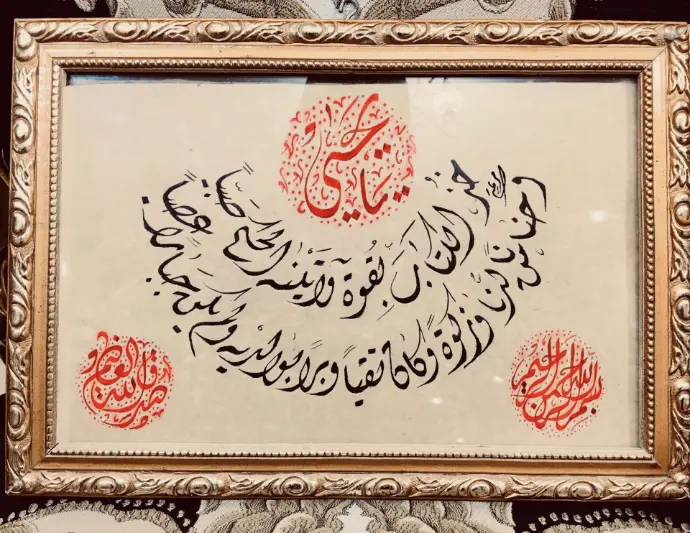 يا يحيى
خذ الكتابَ بقُوة وَآتينه الحكم صبياً
وحنانا من لدنا وزكوة وكان تقياً وبراً بوالديه ولم يكن جبارا عصياً
بسم الله الرحمن الرحيم
صدق الله العظيم